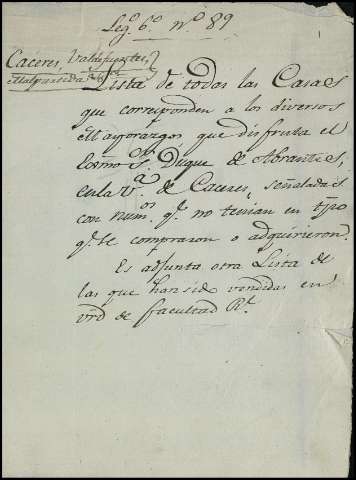 1
Leg.º 6.º n.º 89
Caceres, Valdefuentes,
Malpartida
Lista de todas las Casas
que corresponden a los diversos
Mayorazgos que disfruta el
Exmo S.or Duque de Abrantes,
en la V.a de Caceres, señaladas
con num.os q.e no tenian en tpo
q.e se compraron o adquirieron.
Es adjunta otra Lista de
las que han sido vendidas en
vrd de facultad R.l